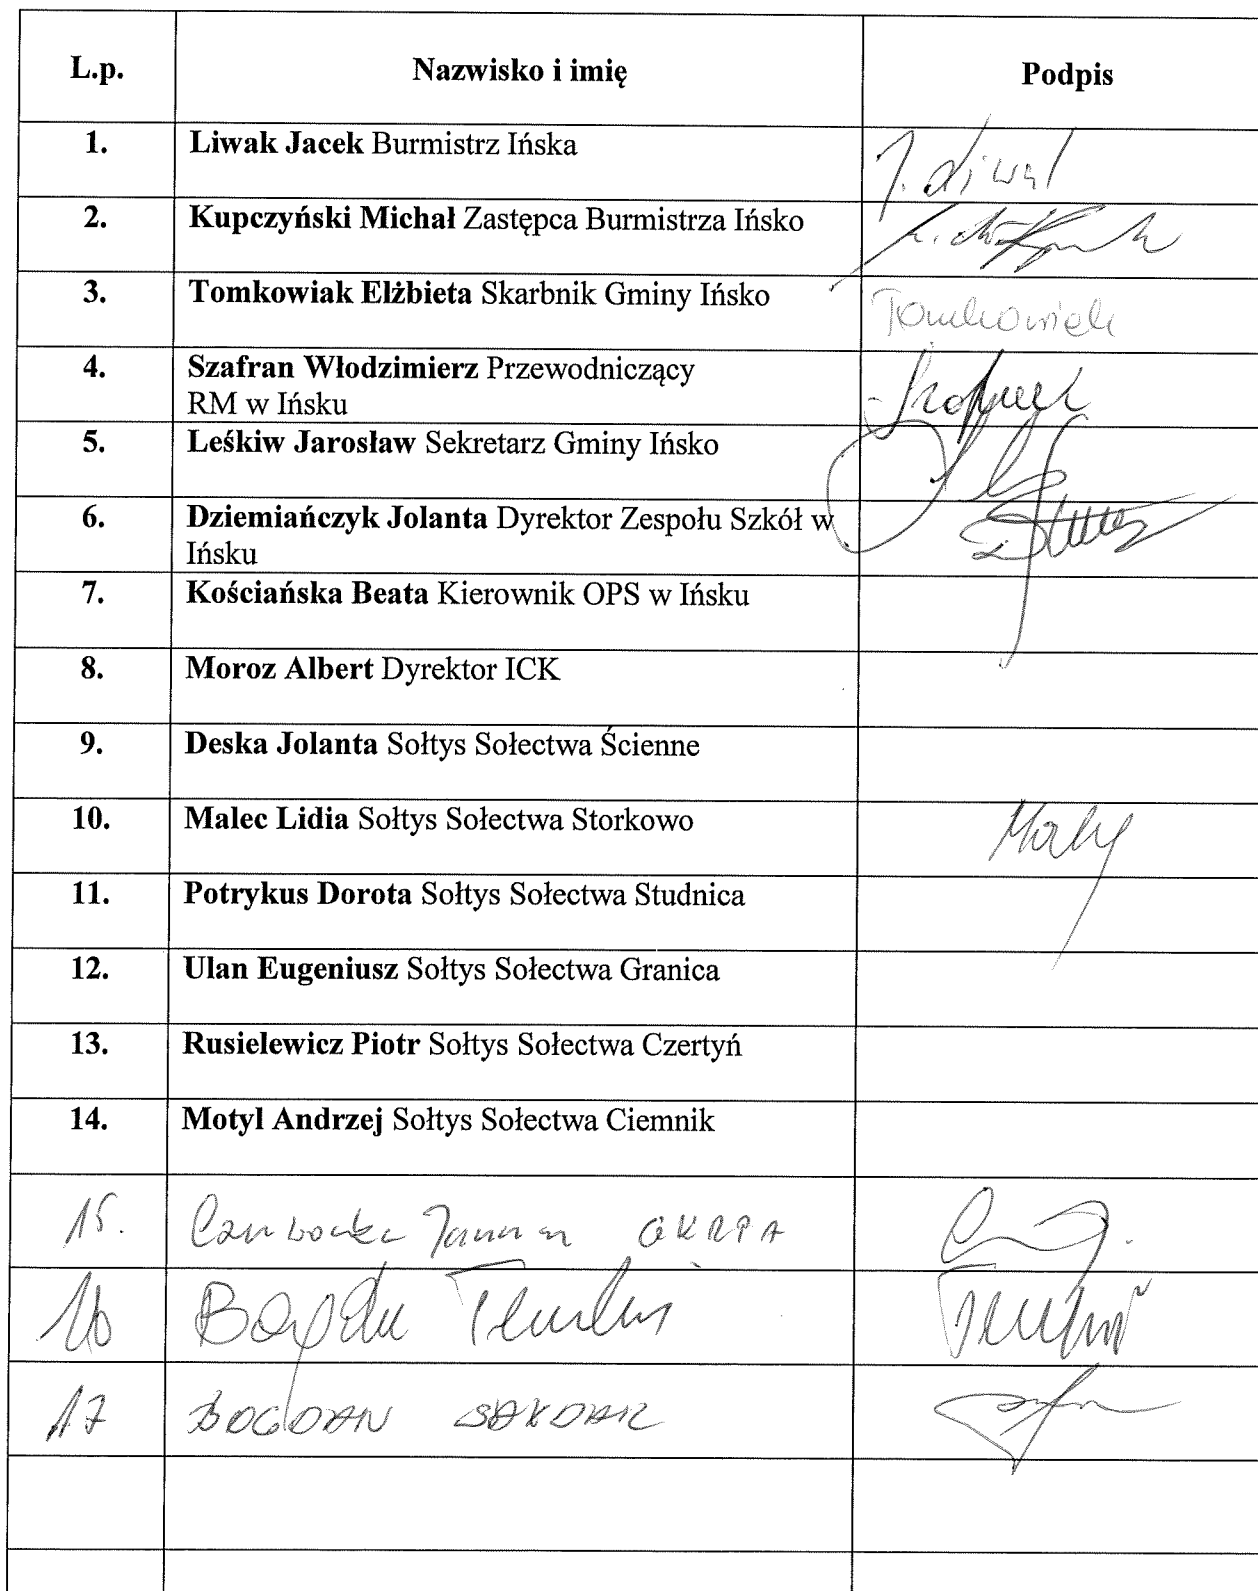 L.p. Nazwisko i imię Podpis
1. Liwak Jacek Burmistrz Ińska J. Liwak
2. Kupczyński Michał Zastępca Burmistrza Ińsko
3. Tomkowiak Elżbieta Skarbnik Gminy Ińsko Tomkowiak
4. Szafran Włodzimierz Przewodniczący
RM w Ińsku
5. Leśkiw Jarosław Sekretarz Gminy Ińsko
6. Dziemiańczyk Jolanta Dyrektor Zespołu Szkół w
Ińsku
7. Kościańska Beata Kierownik OPS w Ińsku
8. Moroz Albert Dyrektor ICK
9. Deska Jolanta Sołtys Sołectwa Ścienne
10. Malec Lidia Sołtys Sołectwa Storkowo
11. Potrykus Dorota Sołtys Sołectwa Studnica
12. Ulan Eugeniusz Sołtys Sołectwa Granica
13. Rusielewicz Piotr Sołtys Sołectwa Czertyń
14. Motyl Andrzej Sołtys Sołectwa Ciemnik
15. GKRPA
16
17 BOGDAN